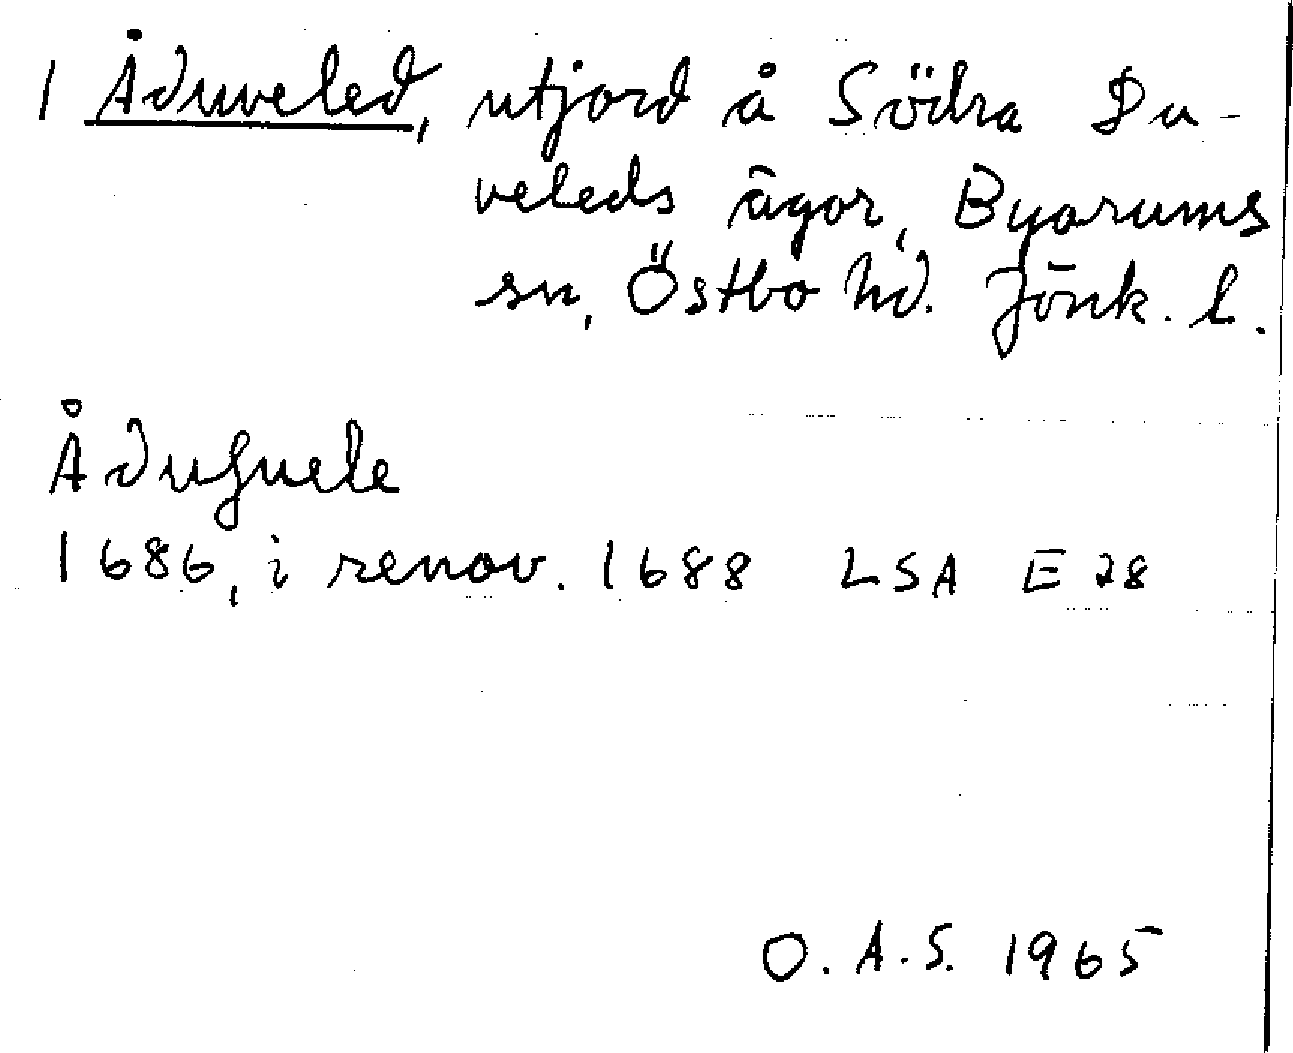 1 Åduveled, utjord å Södra Du-
veleds ägor, Byarums
sn, Östbo hd. Jönk. l.
Åduffuele
1686, i renov. 1688 LSA E 28
O. A. S. 1965